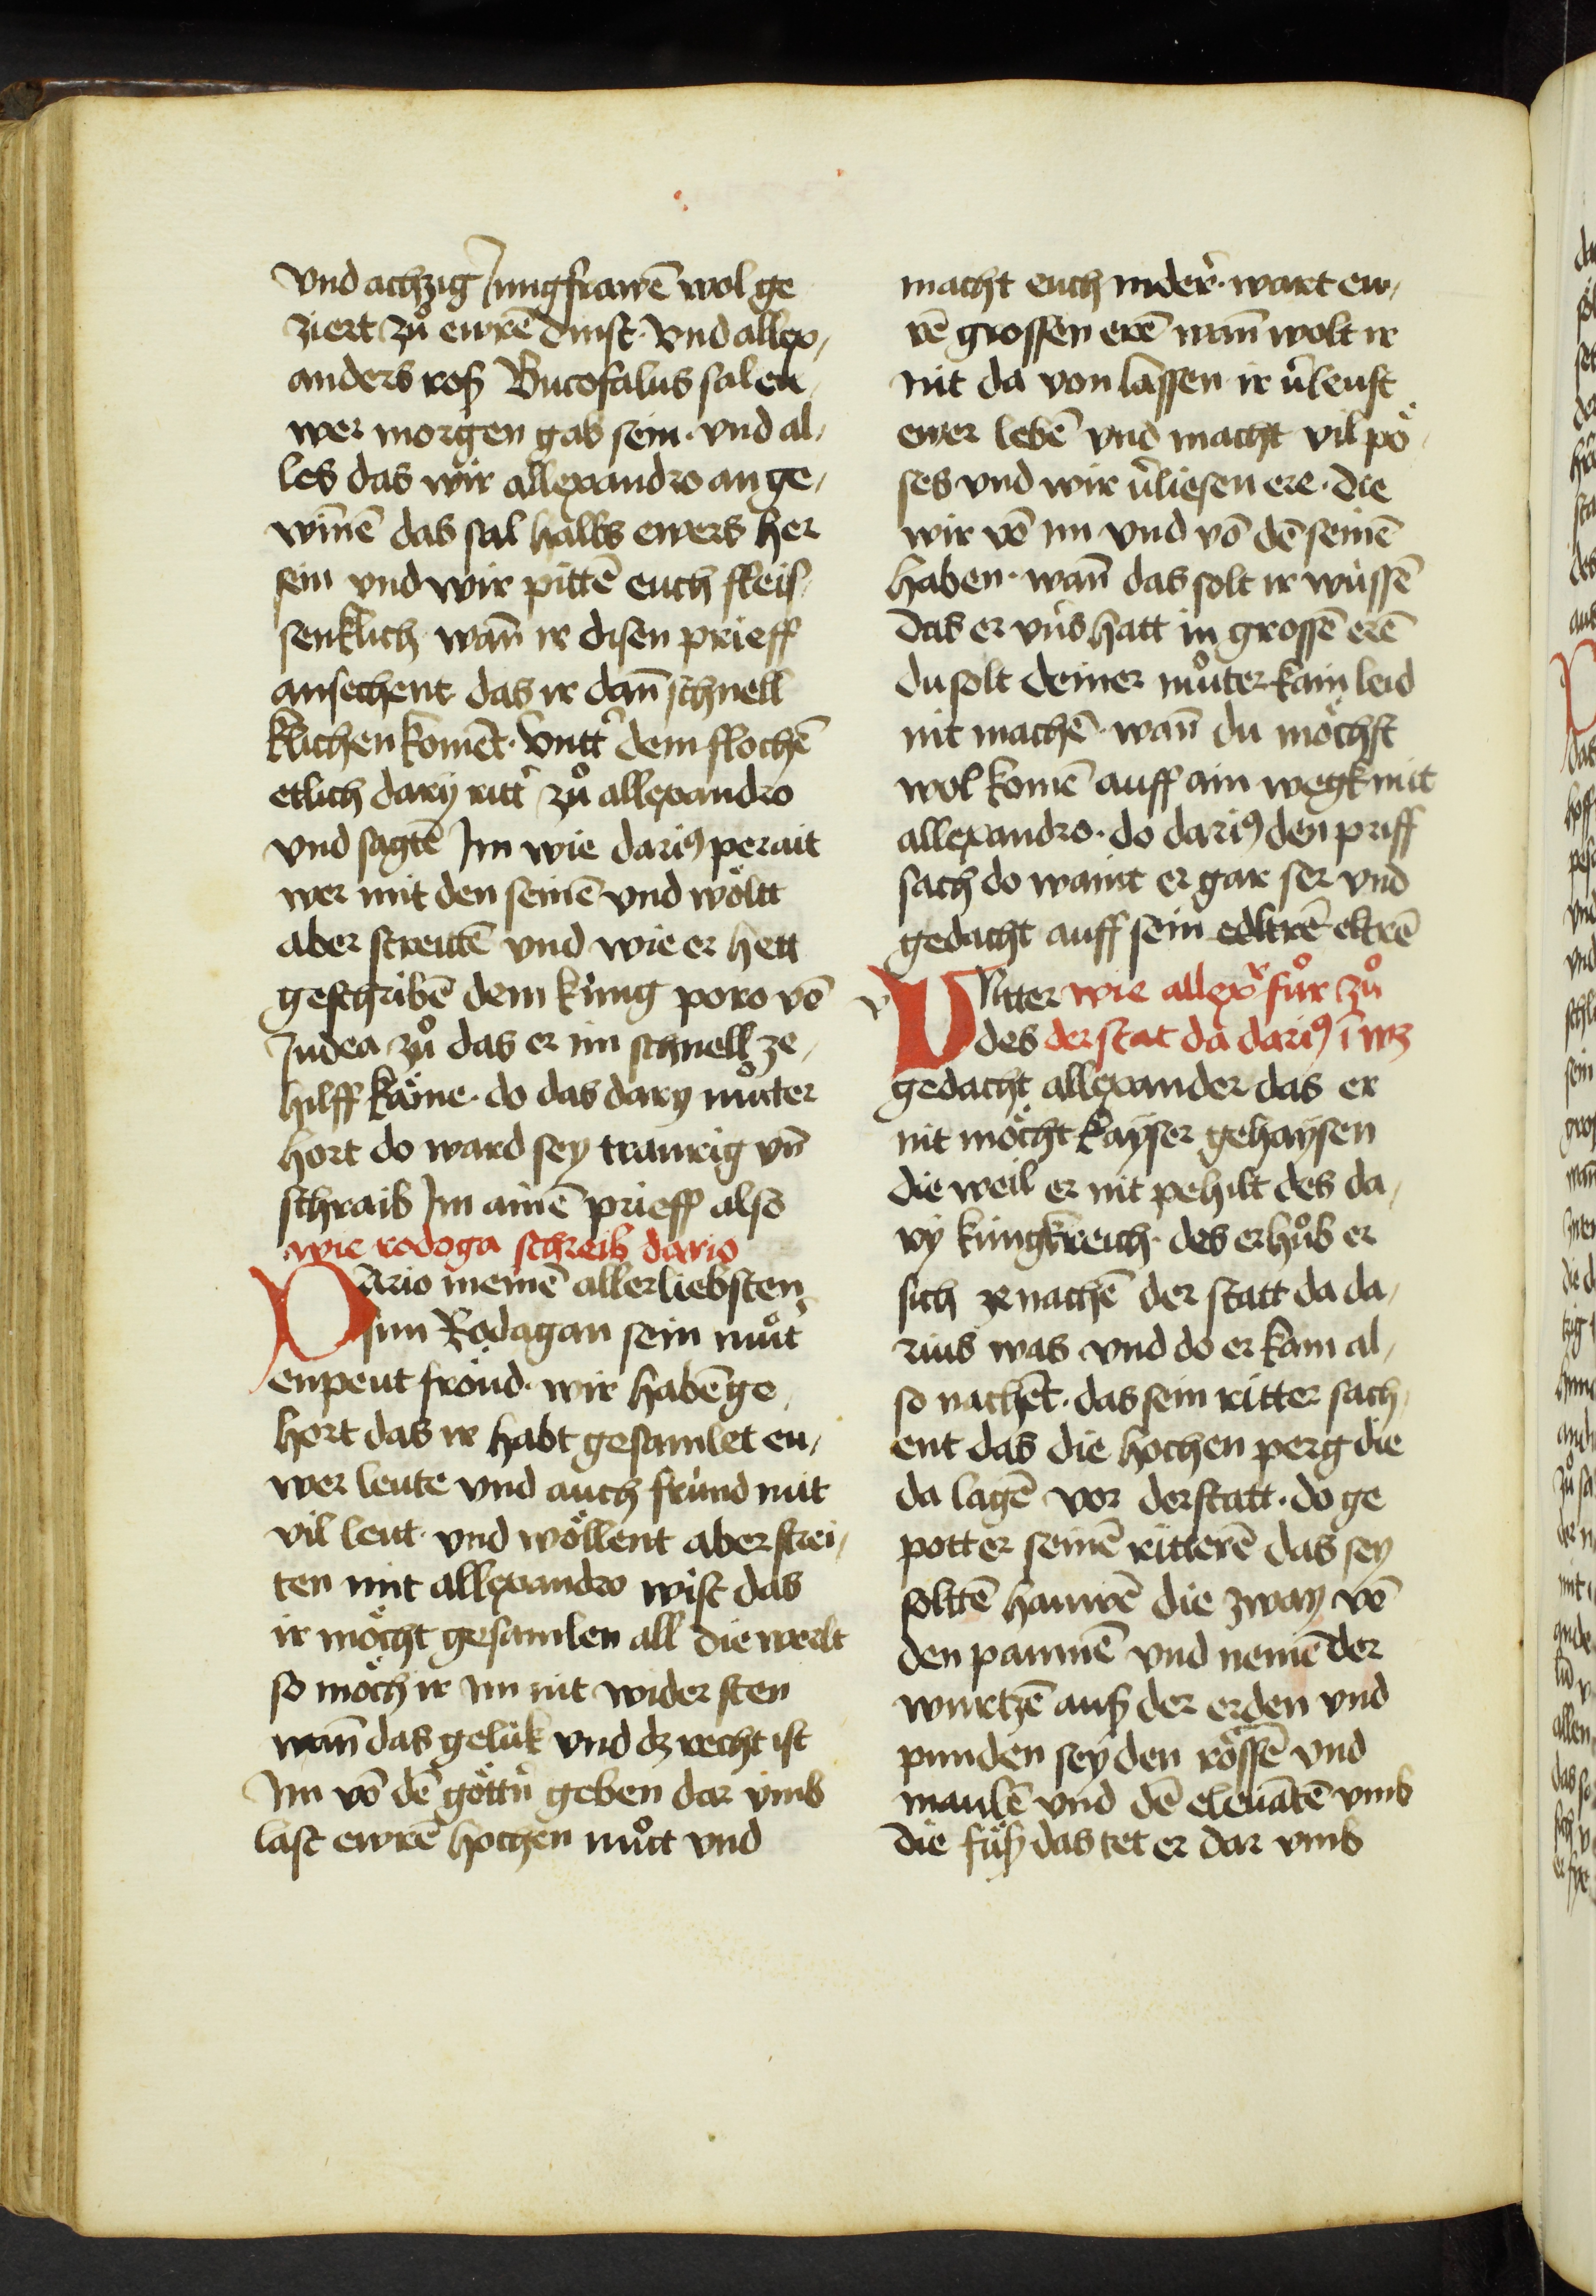 vnd achzig Jungfrawē wol ge
ziert zů ewrē dinst · vnd allex,
anders roß Bucofalus sal eu,
wer morgen gab sein · vnd al,
les das wir allexandro an ge,
wiñē das sal halbs ewers her
sein vnd wir pittē euch fleis,
senklich wañ ir disen prieff
ansechent das ir dañ schnell
klichen komēt · vntt̉ dem flochē
etlich dary ritt̉ zů allexandro
vnd sagtē Im wie dariꝰ perait
wer mit den seinē vnd wöltt
aber streitē vnd wie er hett
geschribē dem küng poro vō
Judea zů das er im schnell ze,
hilff käme · do das dary můter
hort do ward sey traurig vñ
schraib Im ainē prieff also
wie rodoga schreib dario
Dario meinē allerliebsten
sun Rodagan sein můt̉
enpeut fröud · wir habē ge,
hort das ir habt gesamlet eu,
wer leute vnd auch fründ mit
vil leut · vnd wöllent aber strei,
ten mit allexandro wist das
ir möcht gesamlen all die werlt
so möch ir im nit wider sten
wañ das gelük vnd dz recht ist
Im vō dē göttn̉ geben dar vmb
last ewrē hochen můt vnd
macht euch nider̉ · wart ew,
rē grossen erē wañ wolt ir
nit da von lassen ir v̉leust
ewer lebē vnd macht vil pö,
ses vnd wir v̉liesen ere · die
wir vō im vnd vō dē seinē
haben · wañ das solt ir wüssē
das er vns hatt in grossē erē
du solt deiner můter kain leid
nit machē · wañ du möchst
wol komē auff ain wegk mit
allexandro · do dariꝰ den priff
sach do waint er gar ser vnd
gedacht auff sein edltrē eltrē
v
Vntter wie allex̉ für zů
des der stat da dariꝰ ī wz
gedacht allexander das er
nit möcht kayser gehaysen
die weil er nit pehilt des da,
ry küngkreich · des erhůb er
sich ze nachē der statt da da,
rius was vnd do er kam al,
so nachēt · das sein ritter sach,
ent das die hochen perg die
da lagē vor der statt · do ge
pott er seinē ritterē das sey
soltē hauwē die zway vō
den paumē vnd nemē der
wurtzē auß der erden vnd
punden sey den rössē vnd
maulē vnd dē eleuātē vmb
die füß das tet er dar vmb